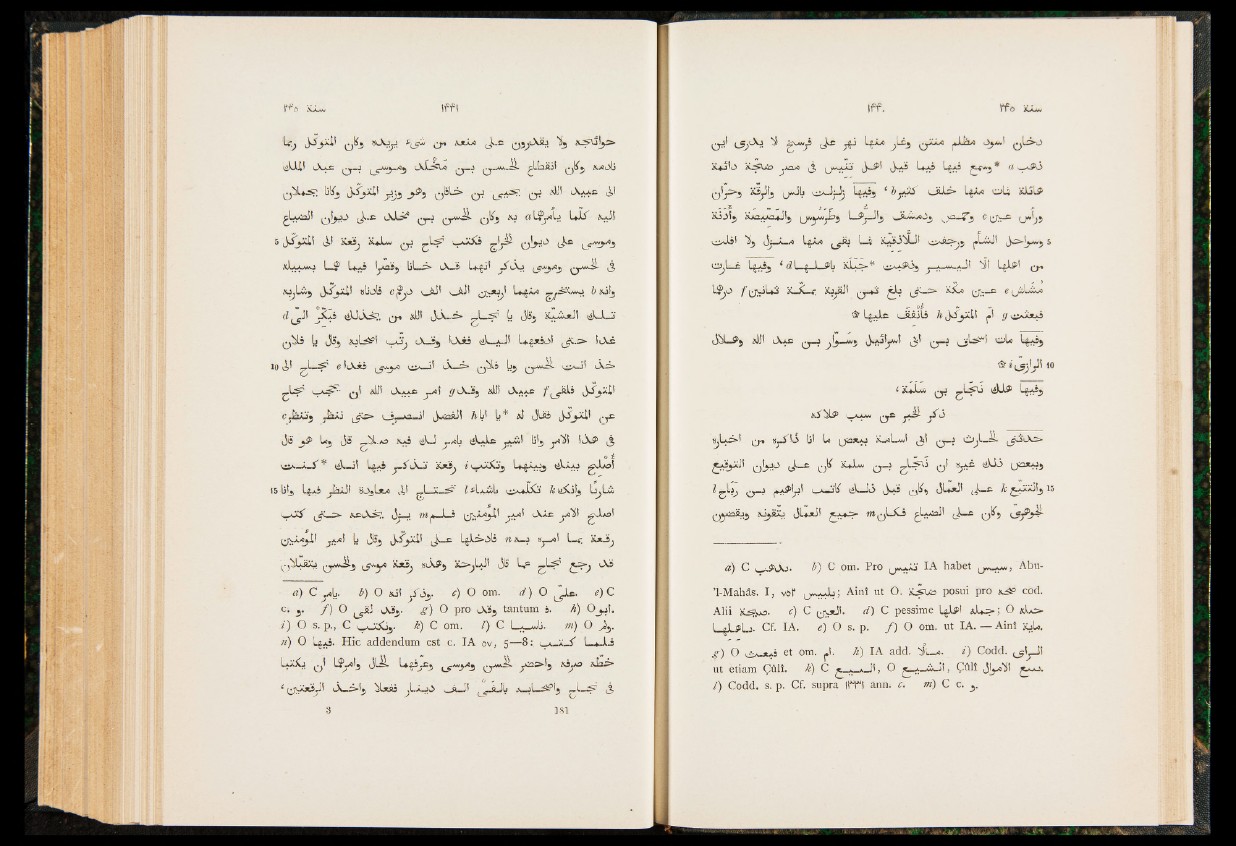 سنة ٢۴٥ ١۴۴.
دخان اسود مظلم منتن وغار منها نهر على فرسخ لا يدرى اين
ذهب a *وسمع فيها فيما قيل اهل تنّيس فى مصر ضجّة دائمة
هائلة فمات منها خلق كثير b، وفيها زلزلت بالس والرقّة وحرّان
وراس عين c وحمص ودمشق والرُّها وطرسوس والمصّيصة وأذَنة
5 وسواحل الشأم ورجفت اللاذقيّة فما بقى منها منزل ولا افلت
من اهلها الّا اليسير وذهبت *جَبَلة باهلها d، وفيها غارت
مُشاش e عين مكّة حتى بلغ ثمن القربة بمكّة ثمانين f درها
فبعثت g امّ المتوكّل h فأُنفق عليها ۞
وفيها مات اسحاق بن ابى اسرائيل وسوّار بن عبد الله وهلال
10 الرازى i ۞
وفيها هلك نجاح بن سَلَمة،
ذكر الخبر عن سبب هلاكه
حدثنى الحارث بن ابى اسامة ببعض ما انا ذاكره من اخباره
وببعض ذلك غيره ان نجاح بن سلمة كان على ديوان التوقيع
15 والتتبّع k على العمّال وكان قبل ذلك كاتب ابراهيم بن رباح l
الجوهرى وكان على الضياع فكان m جميع العمال يتّقونه ويقضون
a) C يذهب. b) C om. Pro تنيس IA habet سيس, Abu-
'l-Mahâs. I, ٧٥٢ بلبيس; Ainî ut O. ضجّة posui pro صحه cod.
Alii صيحة. c) C العين. d) C pessime جملة اهلها; O حمله
باهلها. Cf. IA. e) O s. p. f) O om. ut IA. — Ainî مايه.
g) O فبعث et om. ام. h) IA add. مالا. i) Codd. الراى
ut etiam Çûlî. k) C السبع, O التشبع, Çûlî تتبع الاموال.
l) Codd. s. p. Cf. supra ١٣٣١ ann. c. m) C c. و.
سنة ٢۴٥ ١۴۴١
حوائجه ولا يقدرون على منعه من شىء يريده وكان المتوكّل ربّما
نادمه وكان انقطاع الحسن بن مَخْلَد وموسى بن عبد الملك
الى عبيد الله بن يحيى بن خاقان وهو وزير المتوكّل وكانا يحملان
اليه كلّما يأمرهما a به وكان الحسن بن مخلد على ديوان الضياع
5 وموسى على ديوان الخراج فكتب نجاح بن سلمة رقعة الى المتوكّل
فى الحسن وموسى يذكر انهما قد خانا وقصّرا فيما هما بسبيله
وانه b يستخرج منهما اربعين الف الف درهم c فادناه المتوكّل وشاربه
تلك العشيّة وقال يا نجاح خذل الله من يخذلك فبَكِّرْ الىّ d
غدا حتى ادفعهما اليك فغدا وقد رتّب اصحابه وقال يا فلان
10 خذ انت الحسن ويا فلان خذ انت موسى فغدا e نجاح الى
المتوكّل فلقى f عبيد الله وقد g امر عبيد الله ان يحجب نجاح
عن المتوكل فقال له *يا ابا h الفضل انصرف حتى ننظر وتنظر c
فى هذا الامر وانا اشير عليك بامر لك فيه صلاح قال وما هو قال
أُصلح بينك وبينهما وتكتب i رقعة تذكر فيها انك *كنت
15 شاربًا وانك k تكلّمت باشياء l تحتاج الى معاودة النظر فيها وانا
اصلح الامر عند امير المؤمنين فلم m يزل يخدعه حتى كتب
رقعة بما امره n به فادخلها على المتوكّل وقال يا امير المؤمنين
قد رجع نجاح عما قال البارحة وهذه رقعة موسى والحسن يتقبّلان
a) C يامر. b) O وذكر انه. c) O om. d) O علىّ. e) C
c. و. f) O وقد لقى. g) O pro وقد tantum و. h) O ابو.
i) O s. p., C ونكتب. k) C om. l) C بلسان. m) O ولم.
n) O فيها. Hic addendum est c. IA ٥٧, 5—8: فلما كتب
خطه صرفه واحضر الحسن وموسى وعرفهما الحال وامرهما ان يكتبا
فى نجاح واصحابه بالفى الف دينار ففعلا واخذ الرقعتين،
3 181